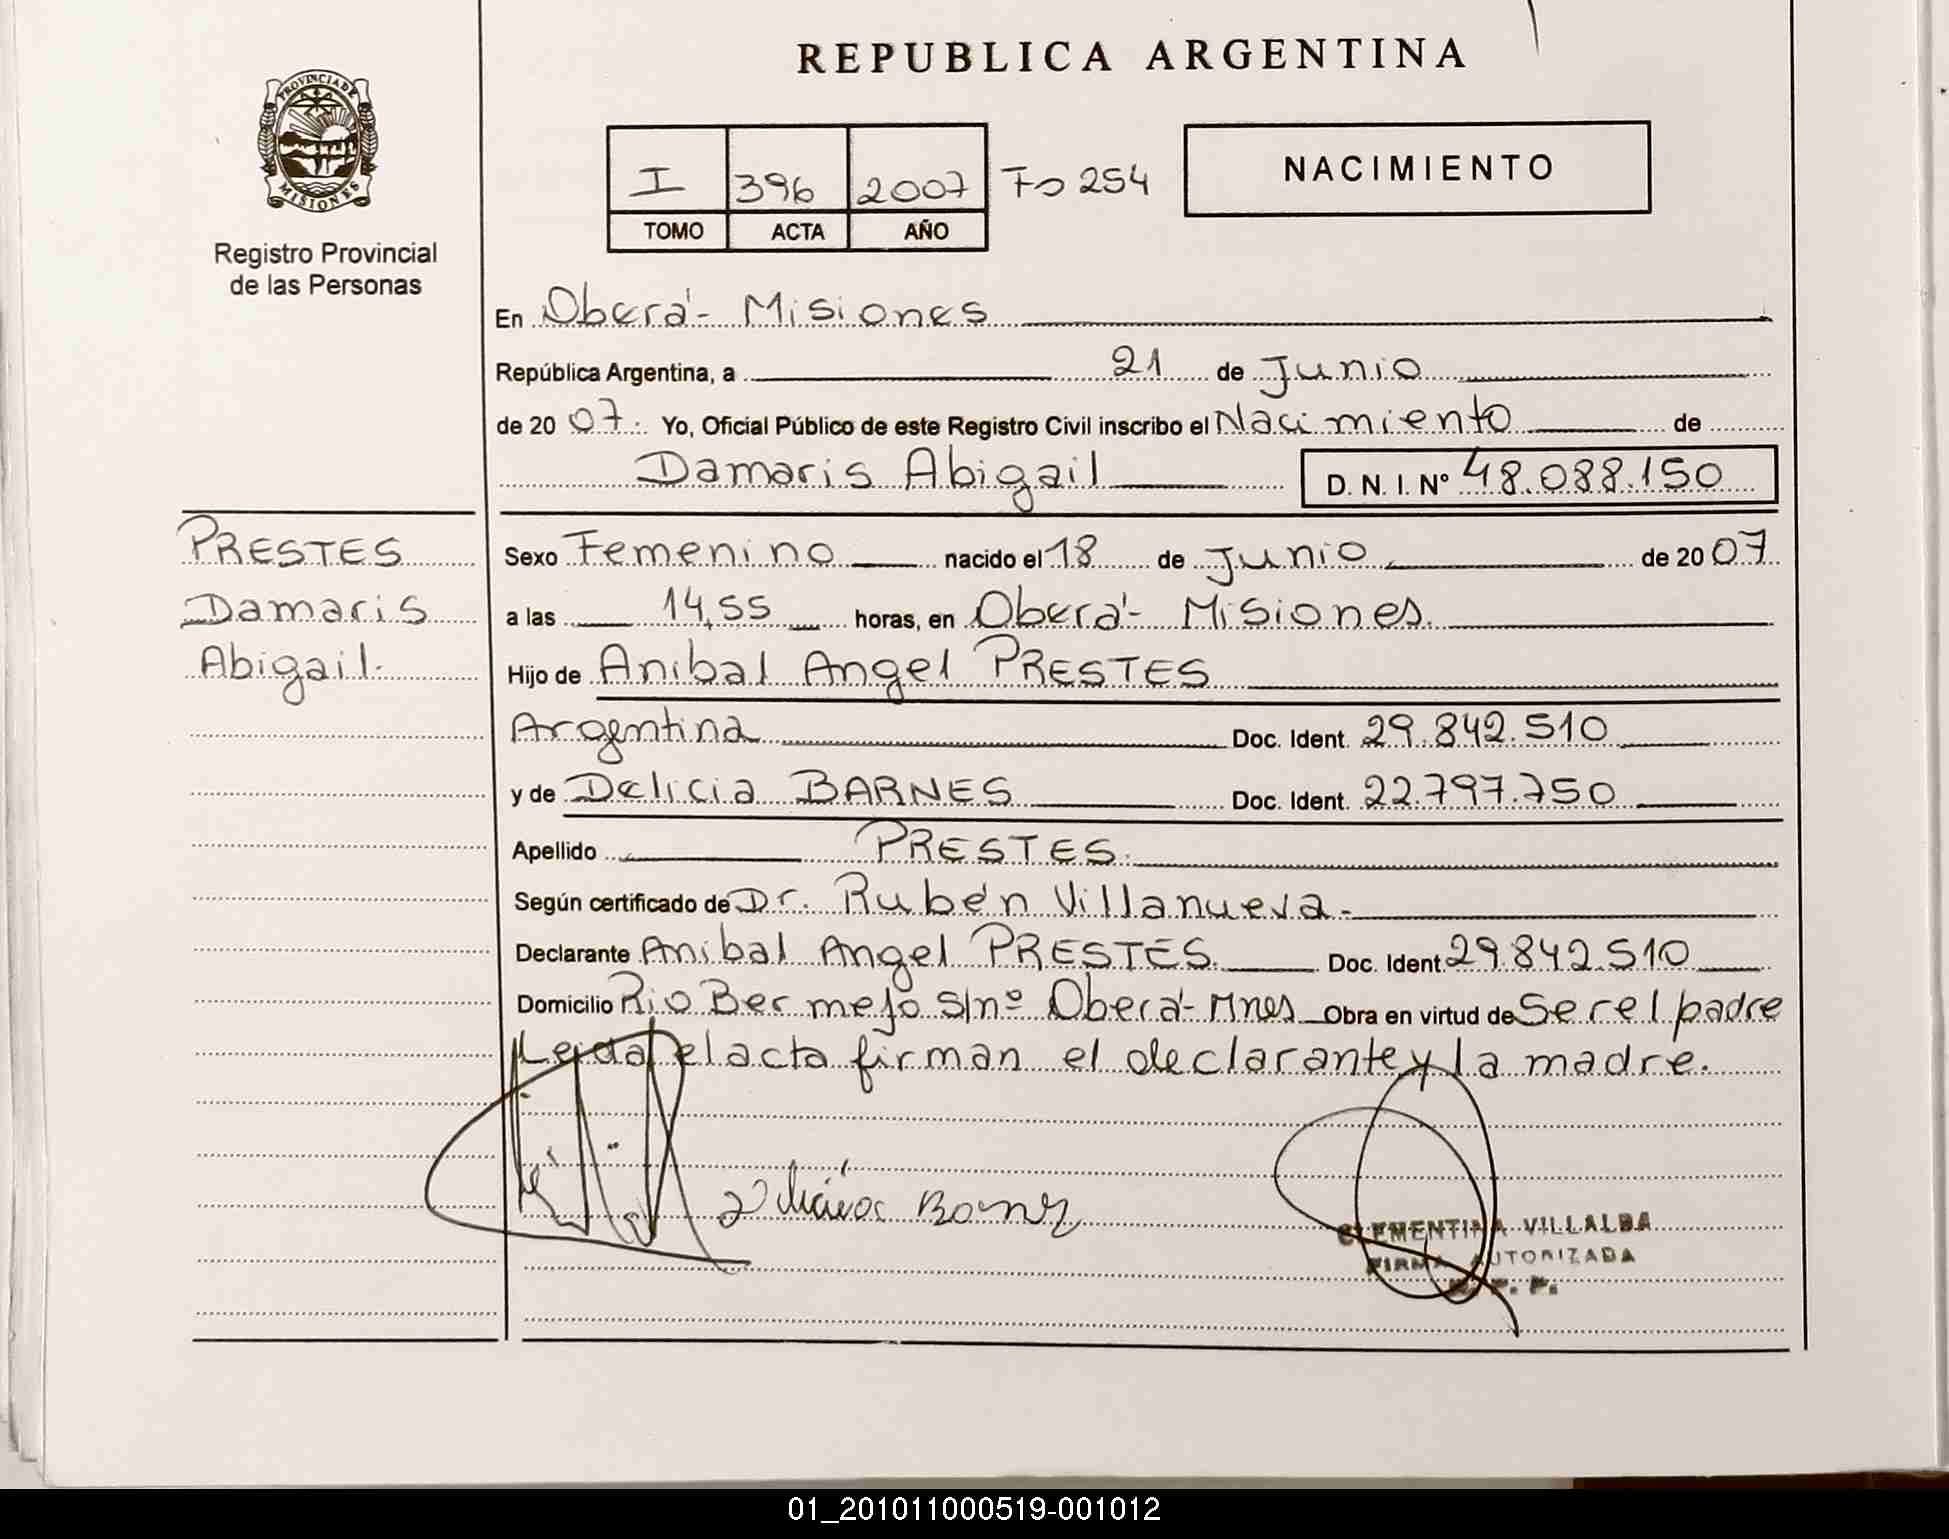 REPUBLICA ARGENTINA
PROVINCIA DE
MISIONES
Registro Provincial
de las Personas
I 396 2007 Fo 254
TOMO ACTA AÑO
NACIMIENTO
En Oberá - Misiones
República Argentina, a 21 de Junio
de 20 07. Yo, Oficial Público de este Registro Civil inscribo el Nacimiento de
Damaris Abigail D. N. I. Nº 48.088.150
PRESTES
Damaris
Abigail.
Sexo Femenino nacido el 18 de Junio de 20 07
a las 14,55 horas, en Oberá - Misiones.
Hijo de Anibal Angel PRESTES
Argentina Doc. Ident. 29.842.510
y de Delicia BARNES Doc. Ident. 22.797.750
Apellido PRESTES.
Según certificado de Dr. Rubén Villanueva.
Declarante Anibal Angel PRESTES. Doc. Ident. 29.842.510
Domicilio Rio Bermejo s/nº Oberá - Mnes Obra en virtud de Ser el padre
Leida el acta firman el declarante y la madre.
CLEMENTINA VILLALBA
FIRMA AUTORIZADA
01_201011000519-001012